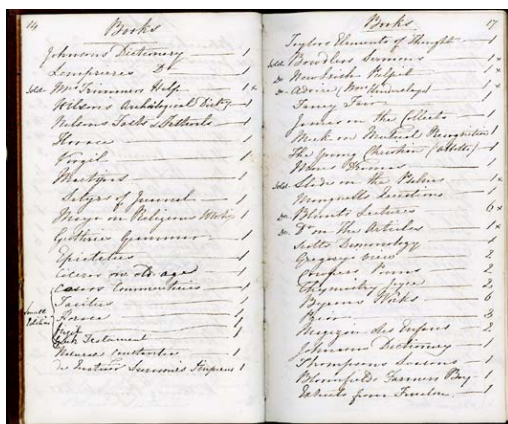 14 Books
Johnsons Dictionary 1
Lempriere Do 1
Sold Mrs Trimmers Help 1 x
Wilsons Archlogical Dicty 1
Nelsons Fasts & Festivals 1
Horace 1
Virgil 1
Martyrs 1
Satyrs of Juvenal 1
on Religious 1
Guthries Grammar 1
Epictetus 1
Cicero on Old age 1
Small Edition
Caesars Commentaries 1
Tacitus 1
Horace 1
Testament 1
1
1
Books 17
Taylors Elements of Thought 1
Sold Bowdlers Sermons 1 x
Do New British Pulpit 1 x
Do Advice (Mrs ) 1 x
Fancy Fair 1
James on the Collects 1
on Mutual Recognition 1
The Young Christian (Abbott) 1
Dramas 1
Sold Slade on the Psalms 1 x
Mangnalls Questions 1
Do Blunts Lectures 6 x
Do Do on the Articles 1 x
Scotts Demonology 1
Gregorys 2
Cowpers Poems 2
Chymistry Joyce 2
Byrons Works 6
3
Magazin des Enfans 2
Johnsons Dictionary 1
Thompsons Seasons 1
Bloomfields Farmers Boy
Extracts from 1